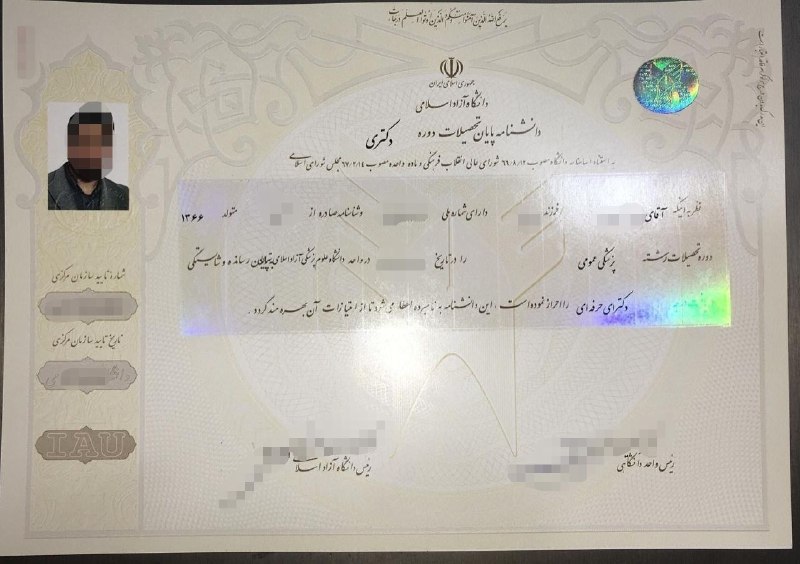 یرفع الله الذین آمنوا منکم والذین اوتوا العلم درجات
جمهوری اسلامی ایران
دانشگاه آزاد اسلامی
دانشنامه پایان تحصیلات دوره دکتری
به استناد اساسنامه دانشگاه مصوب ۶۶/۸/۱۲ شورای عالی انقلاب فرهنگی و ماده واحده مصوب ۶۷/۲/۱۴ مجلس شورای اسلامی
نظر به اینکه آقای فرزند دارای شماره ملی و شناسنامه صادره از متولد ۱۳۶۶
دوره تحصیلات رشته پزشکی عمومی را در تاریخ در واحد دانشگاه علوم پزشکی آزاد اسلامی به پایان رسانده و شایستگی
دکترای حرفه ای را احراز نموده است ، این دانشنامه به نامبرده اعطا می شود تا از امتیازات آن بهره مند گردد .
شماره تایید سازمان مرکزی
تاریخ تایید سازمان مرکزی
IAU
رئیس واحد دانشگاهی
رئیس دانشگاه آزاد اسلامی